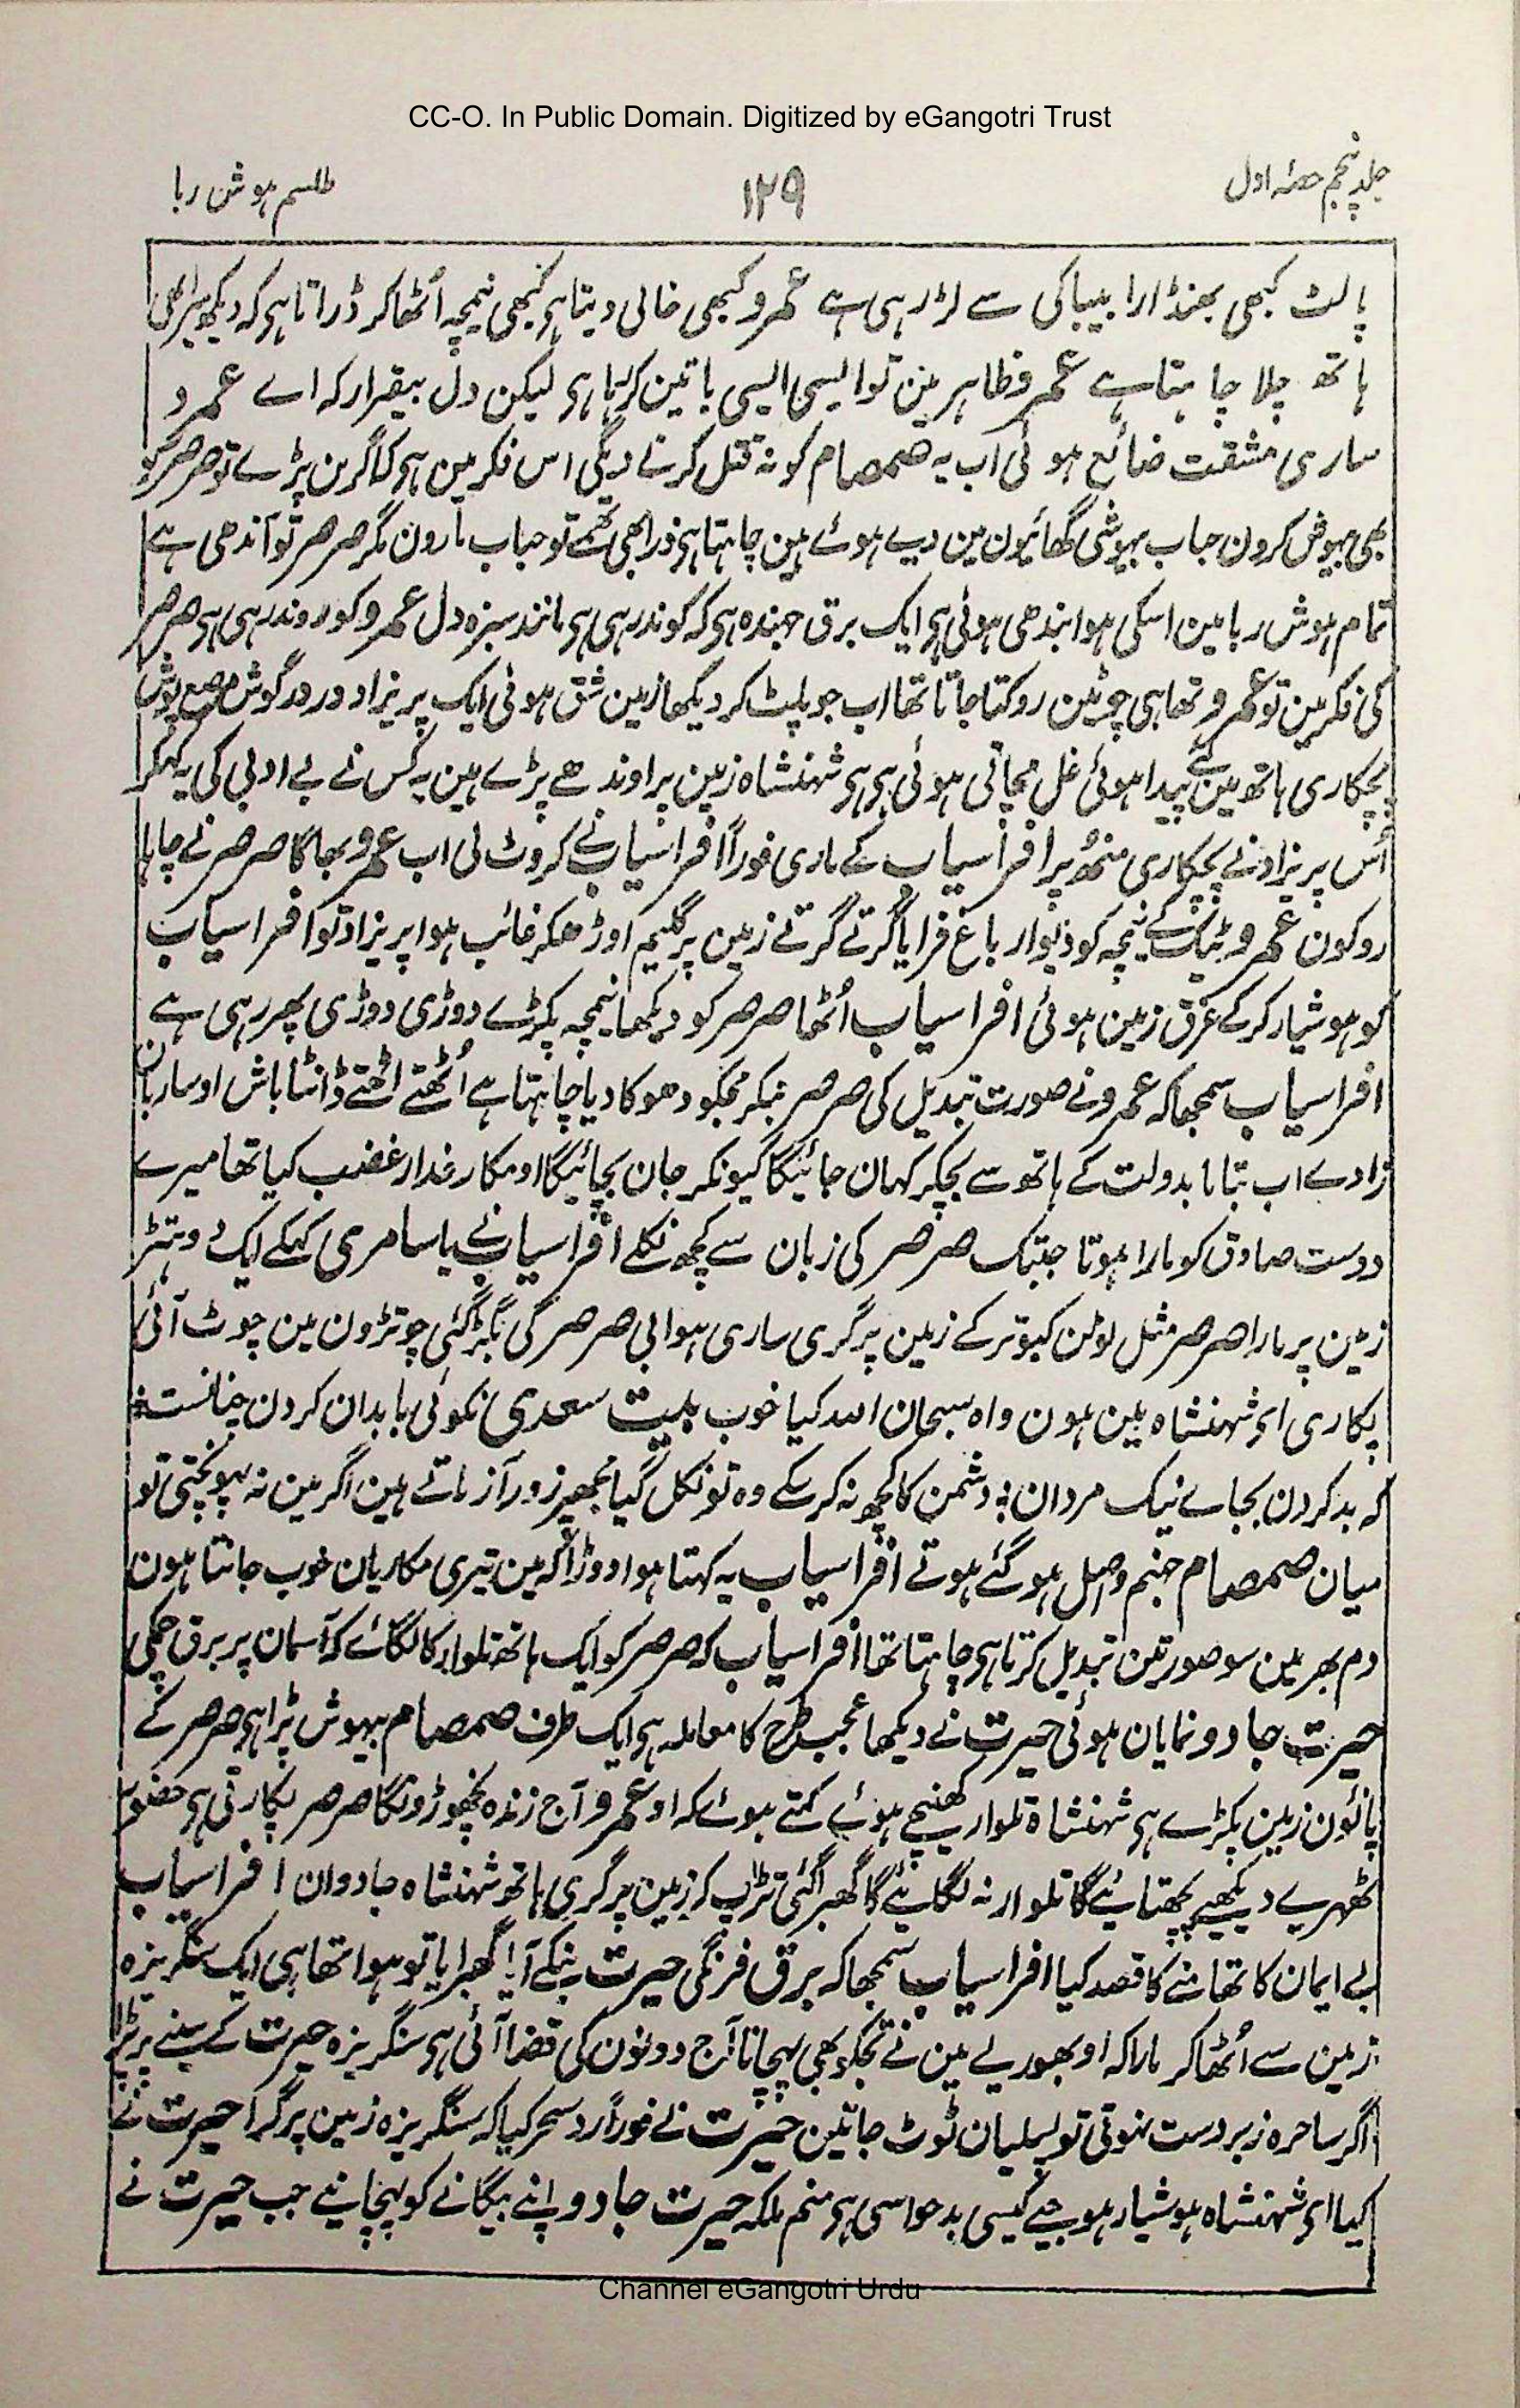 CC-O. In Public Domain. Digitized by eGangotri Trust
جلد پنجم حصۂ اول
۱۲۹
طلسم ہوش ربا
پالٹ کبھی بھنڈارا بیباکی سے لڑ رہی ہے عمرو کبھی خالی دیتا ہی کبھی نیچہ اُٹھا کر ڈراتا ہی کہ دیکھ
ہاتھ چلا چاہتا ہے عمرو ظاہر مین تو ایسی ایسی باتین کر رہا ہی لیکن دل بیقرار کہ اے عمرو
ساری مشقت ضائع ہوئی اب یہ صمصام کو نہ قتل کرنے دیگی اس فکر مین ہی کہ اگر بن پڑے تو صرصر کو
بھی بیہوش کرون حباب بیہوشی گھائیون مین دبے ہوئے ہین چاہتا ہی ذرا بھی تھمے تو حباب مارون مگر صرصر تو آندھی ہے
تمام ہوش ربا مین اسکی ہوا بندھی ہوئی ہی ایک برق جہندہ ہی کہ کوند رہی ہی مانند سبزہ دل عمرو کو روند رہی ہی صرصر
کی فکر مین تو عمرو تھا ہی چوٹین روکتا جاتا تھا اب جو پلٹ کر دیکھا زمین شق ہوئی ایک پریزاد دور در گوش مرصع پوش
پچکاری ہاتھ مین لیے پیدا ہوئی غل مچاتی ہوئی ہی ہی شہنشاہ زمین پر اوندھے پڑے ہین یہ کس نے بے ادبی کی یہ کہکر
اُس پریزاد نے پچکاری منھ پر افراسیاب کے ماری فوراً افراسیاب نے کروٹ لی اب عمرو بھاگا صرصر نے چاہا
روکون عمرو ٹیک کے نیچہ کو دیوار باغ فرایا گرتے گرتے زمین پر گلیم اوڑھکر غائب ہوا پریزاد تو افراسیاب
کو ہوشیار کرکے غرق زمین ہوئی افراسیاب اُٹھا صرصر کو دیکھا نیچہ پکڑے دوڑی دوڑی پھر رہی ہے
افراسیاب سمجھا کہ عمرو نے صورت تبدیل کی صرصر بنکر مجکو دھوکا دیا چاہتا ہے اُٹھتے اٹھتے ڈانٹا باش او ساربان
زادے اب بتا مابدولت کے ہاتھ سے بچکر کہان جائیگا کیونکر جان بچائیگا او مکار غدار غضب کیا تھا میرے
دوست صادق کو مارا ہوتا جبتک صرصر کی زبان سے کچھ نکلے افراسیاب نے یاسامری کہکے ایک دوہتڑ
زمین پر مارا صرصر مثل لوٹن کبوتر کے زمین پر گری ساری ہوا بی صرصر کی بگڑ گئی چوتڑون مین چوٹ آئی
پکاری ای شہنشاہ مین ہون واہ سبحان اللہ کیا خوب بیت سعدی نکوئی با بدان کردن چنانست ؞
کہ بد کردن بجاے نیک مردان ؞ دشمن کا کچھ نہ کرسکے وہ تو نکل گیا مجھپر زور آزماتے ہین اگر مین نہ پہونچتی تو
میان صمصام جہنم واصل ہو گئے ہوتے افراسیاب یہ کہتا ہوا دوڑا کہ مین تیری مکاریان خوب جانتا ہون
دم بھر مین سو صورتین تبدیل کرتا ہی چاہتا تھا افراسیاب کہ صرصر کو ایک ہاتھ تلوار کا لگائے کہ آسمان پر برق چمکی
حیرت جادو نمایان ہوئی حیرت نے دیکھا عجب طرح کا معاملہ ہی ایک طرف صمصام بیہوش پڑا ہی صرصر کے
پائون زمین پکڑے ہی شہنشاہ تلوار کھنیچے ہوئے کہتے ہوئے کہ او عمرو آج زندہ نچھوڑونگا صرصر پکارتی ہی حضور
ٹھہرے دیکھیے پچھتائیے گا تلوار نہ لگائیے گا گھبرا گئی تڑپ کر زمین پر گری ہاتھ شہنشاہ جادوان افراسیاب
بے ایمان کا تھامنے کا قصد کیا افراسیاب سمجھا کہ برق فرنگی حیرت بنکے آیا گھبرایا تو ہوا تھا ہی ایک سنگریزہ
زمین سے اُٹھا کر مارا کہ او بھوریے مین نے تجکو بھی پہچانا آج دونون کی قضا آئی ہی سنگریزہ حیرت کے سینے پر پڑا
اگر ساحرہ زبردست نہوتی تو پسلیان ٹوٹ جاتین حیرت نے فوراً رد سحر کیا کہ سنگریزہ زمین پر گرا حیرت نے
کہا ای شہنشاہ ہوشیار ہو جیے کیسی بدحواسی ہی منم ملکہ حیرت جادو اپنے بیگانے کو پہچانیے جب حیرت نے
Channel eGangotri Urdu